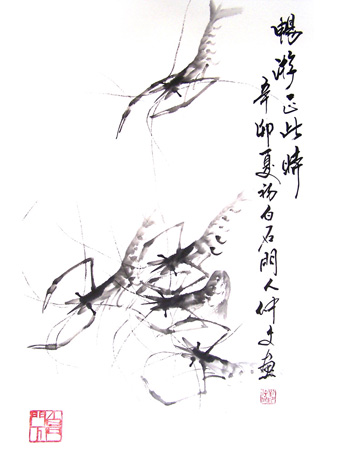 暢游正此時
辛卯夏初白石門人仲文畫